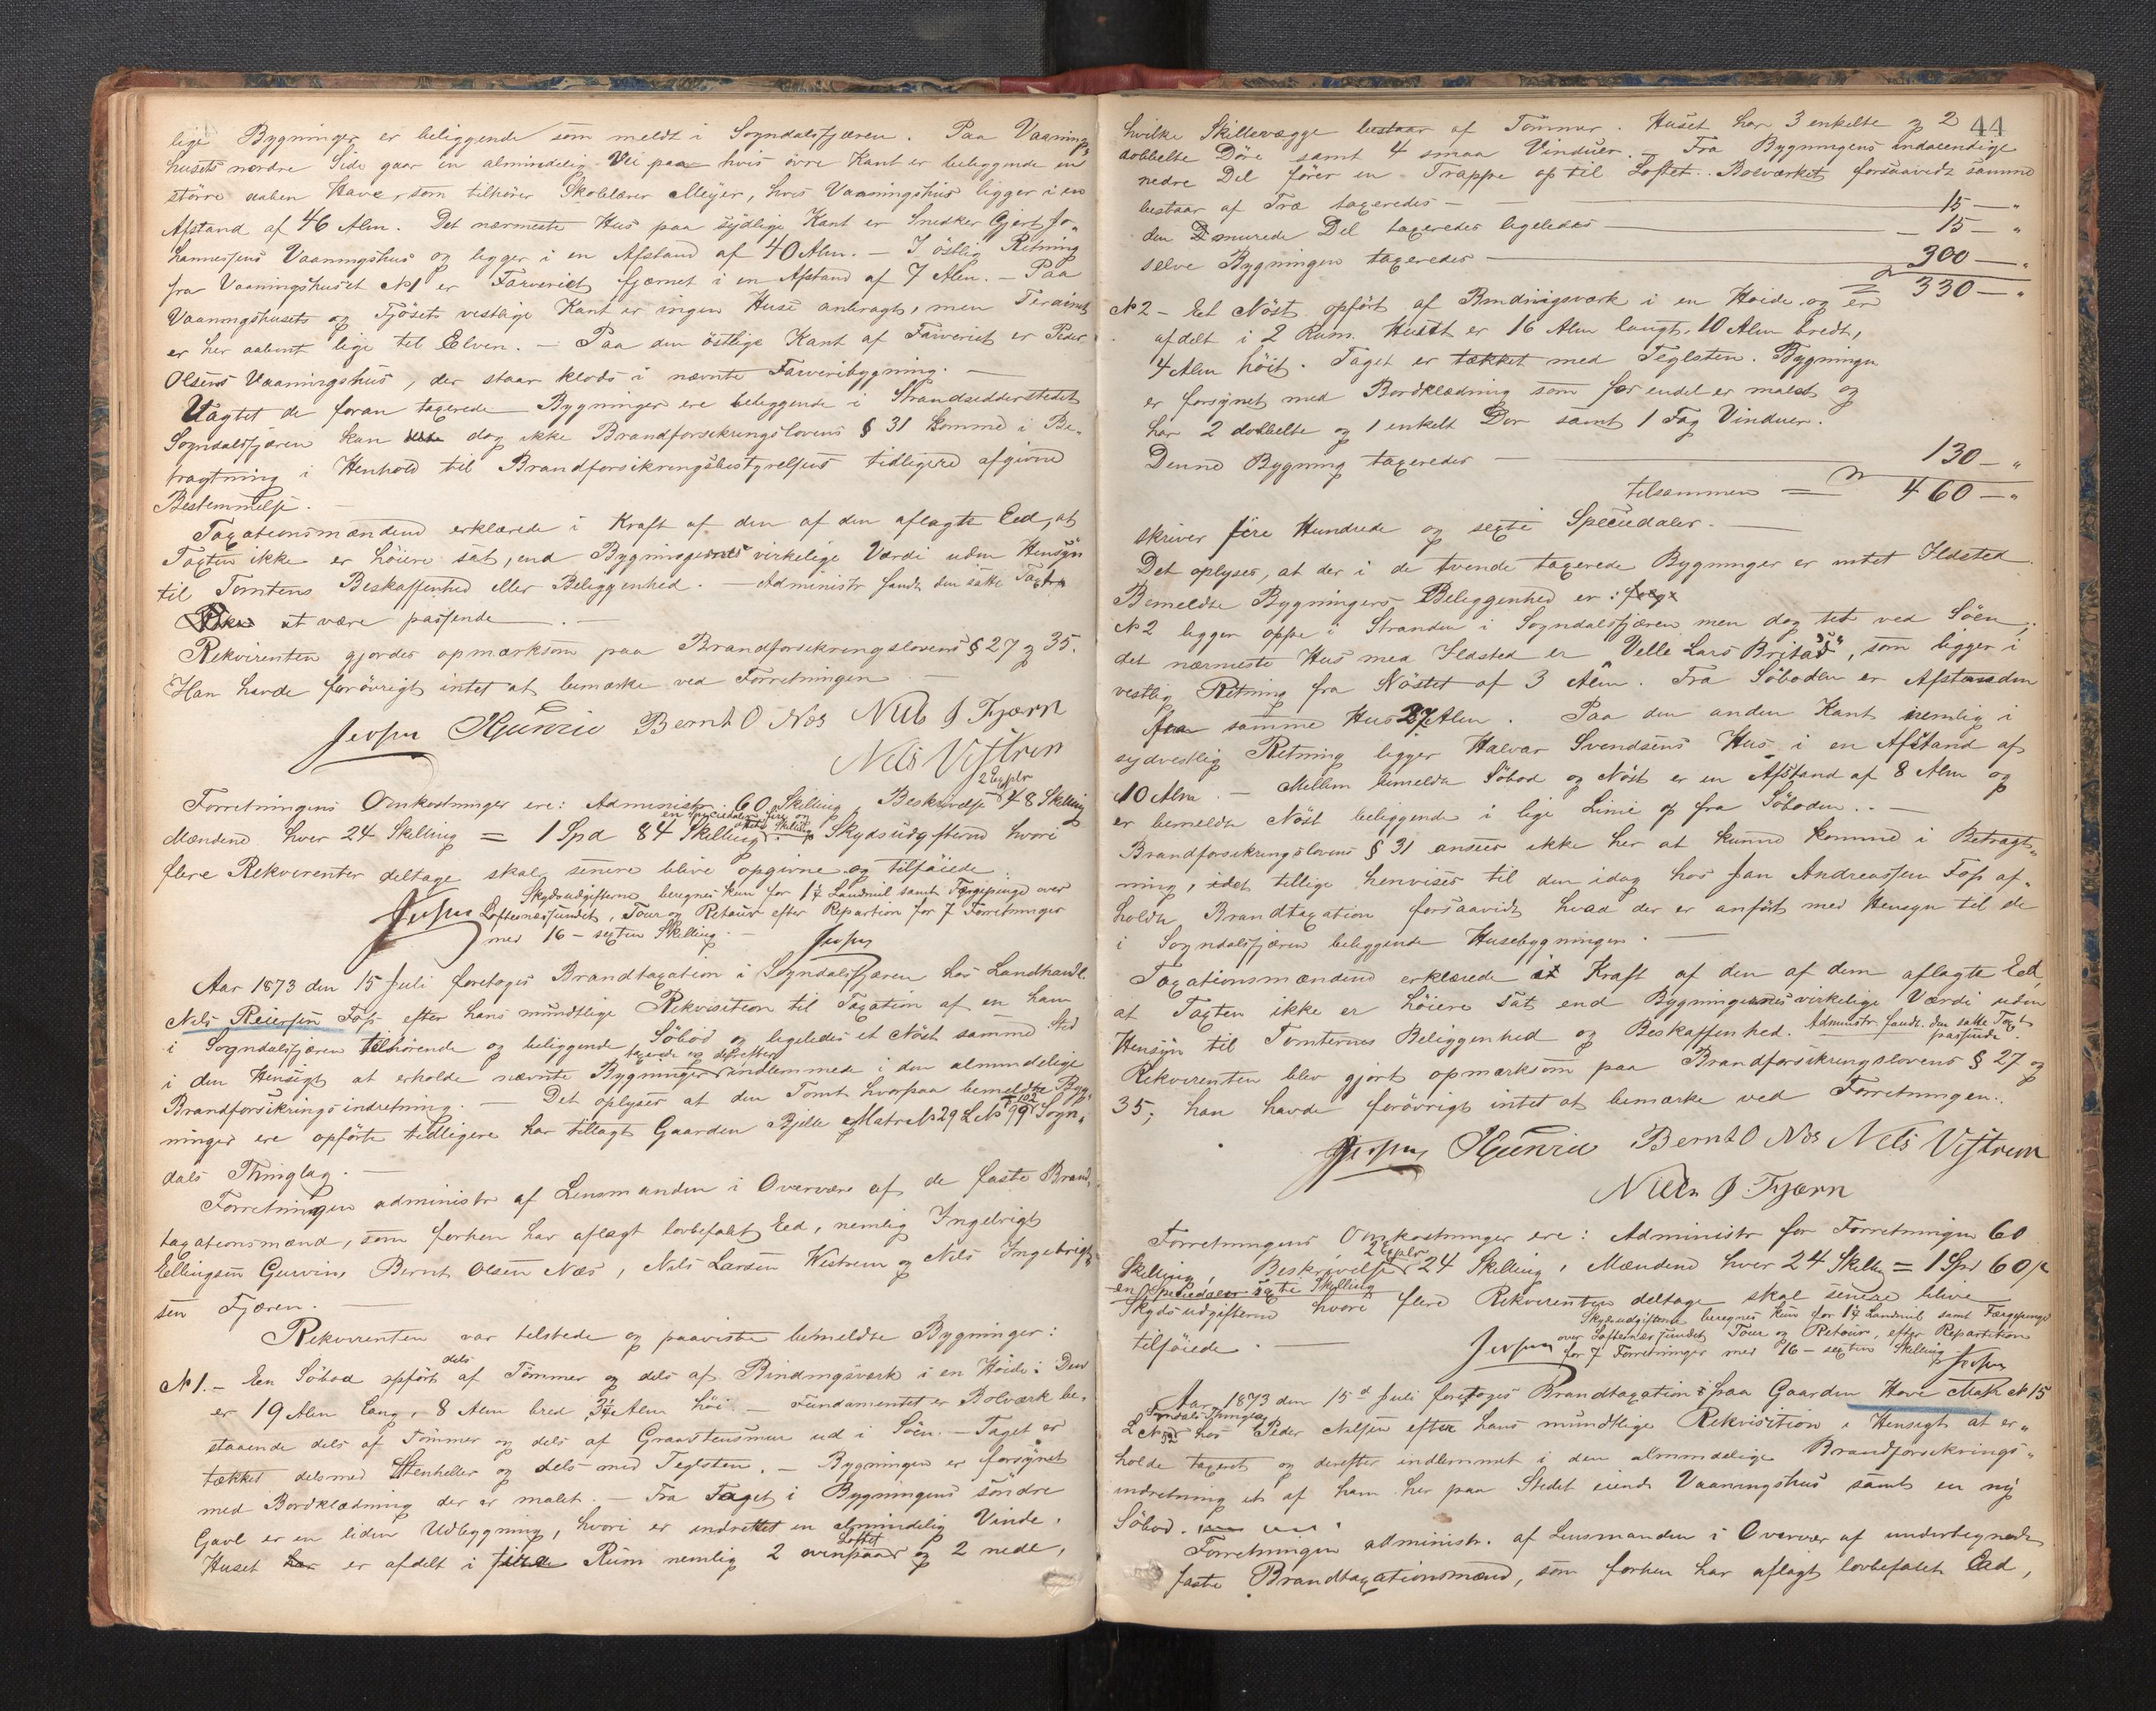 lige Bygninger er beliggende som meldt i Sogndalsfjæren. Paa Vaanings
husets nordre Side gaar en almindelig Vei paa hvis övre Kant er beliggende en
större aaben Have, som tilhörer Skoleløerer Meyer, hvis Vaaningshus ligger i en
Afstand af 46 Alen. Det nærmeste Hus paa sydlige Kant er Snedker Gjert Jo„
hannessens Vaaningshus og ligger i en Afstand af 40 Alen. – I östlig Retning
fra Vaaningshuset № 1 er Farveriet fjærnet i en Afstand af 7 Alen. – Paa
Vaaningshusets og Fjösets vestlige Kant er ingen Huse anbragt, men Terainet
er her aabent lige til Elven. – Paa den östlige Kant af Farveriet er Peder
Olsens Vaaningshus, der staar klods i nævnte Farveribygning. –
Uagtet de foran taxerede Bygninger ere beliggende i Strandsidderstedet
Sogndalsfjæren kan dog ikke Brandforsikringslovens § 31 komme i Be„
tragtning i Henhold til Brandforsikringsbestyrelsens tidligere afgivne
Bestemmelse. –
Taxationsmændene erklærede i Kraft af den af dem aflagte Eed, at
Taxten ikke er höiere sat, end Bygningernes virkelige Værdi uden Hensyn
til Tomtens Beskaffenhed eller Beliggenhed. – Administr fandt den satte Taxt
at være passende. –
Rekvirenten gjordes opmærksom paa Brandforsikringslovens § 27 og 35.
Han havde forövrigt intet at bemærke ved Forretningen –
Jespe IEGurvin Bernt O Næs Nils I Fjærn
Nils Vestrem
2 Explr
Forretningens Omkostninger ere: Administr. 60 Skilling, Beskrivelse 48 Skilling
en Speciedaler fire og
otteti Skilling
Mændene hver 24 Skilling = 1 Spd 84 Skilling. Skydsudgifterne hvori
flere Rekvirenter deltage skal senere blive opgivne og tilföiede.
Skydsudgifterne beregnes kun for 1¼ Landmil samt Færgepenge over
Jespe Loftesnessundet, Tour og Retour efter Repartion for 7 Forretninger
med 16 – sexten Skilling. –
Jespe
Aar 1873 den 15 Juli foretoges Brandtaxation i Sogndalsfjæren hos Landhandl.
Nils Reiersen Foss efter hans mundtlige Rekvisition til Taxation af en ham
i Sogndalsfjæren tilhörende og beliggende Söbod og ligeledes et Nöst samme Sted
taxerede og derefter
i den Hensigt at erholde nævnte Bygninger indlemmede i den almindelige
Brandforsikringsindretning. – Det oplyses at den Tomt hvorpaa bemeldte Byg„
ninger ere opförte tidligere har tillagt Gaarden Bjelle Matr № 29 L № 99 & 102 Sogn„
dals Thinglag. –
Forretningen administr af Lensmanden i Overvære af de faste Brand„
taxationsmænd, som forhen har aflagt lovbefalet Eed, nemlig Ingebrigt
Ellingsen Gurvin, Bernt Olsen Næs, Nils Larsen Westrem og Nils Ingebrigt„
sen Fjæren. –
Rekvirenten var tilstede og paaviste bemeldte Bygninger:
dels
№ 1. – Een Söbod opfört af Tömmer og dels af Bindingsværk i en Höide: Den
er 19 Alen lang, 8 Alen bred, 3¼ Alen höi. – Fundamentet er Bolværk be„
staaende dels af Tömmer og dels af Graastensmur ud i Söen. – Taget er
tækket dels med Stenheller og dels med Teglsten. – Bygningen er forsynet
med Bordklædning der er malet. – Fra Taget i Bygningens söndre
Gavl er en liden Udbygning, hvori er indrettet en almindelig Vinde.
Loftet
Huset er afdelt i fire Rum nemlig 2 ovenpaa og 2 nede,
44
hvilke Skillevægge bestaar af Tömmer. Huset har 3 enkelte og 2
dobbelte Döre samt 4 smaa Vinduer. – Fra Bygningens indvendige
nedre Del förer en Trappe op til Loftet. Bolværket forsaavidt samme
bestaar af Træ taxeredes – 15 – „
den murede Del taxeredes ligeledes – 15 – „
selve Bygningen taxeredes – 300 – „
330 – „
№ 2 – Et Nöst opfört af Bindingsværk i en Höide og er
afdelt i 2 Rum. Huset er 16 Alen langt, 10 Alen bredt,
4 Alen höit. Taget er tækket med Teglsten. Bygningen
er forsynet med Bordklædning som for endel er malet og
har 2 dobbelte og 1 enkelt Dör samt 1 Fag Vinduer.
Denne Bygning taxeredes – 130 – „
tilsammen = 460 – „
skriver fire Hundrede og sexti Speciedaler. –
Det oplyses, at der i de tvende taxerede Bygninger er intet Ildsted.
Bemeldte Bygningers Beliggenhed er:
№ 2 ligger oppe i Stranden i Sogndalsfjæren men dog tet ved Söen;
det nærmeste Hus med Ildsted er Velle Lars Britas, som ligger i
vestlig Retning fra Nöstet af 3 Alen. Fra Söboden er Afstanden
fra samme Hus 27 Alen. Paa den anden Kant nemlig i
sydvestlig Retning ligger Halvar Svendsens Hus i en Afstand af
10 Alen. – Mellem bemeldte Söbod og Nöst er en Afstand af 8 Alen og
er bemeldte Nöst beliggende i lige Linie op fra Söboden. –
Brandforsikringslovens § 31 ansees ikke her at kunne komme i Betragt„
ning, idet tillige henvises til den idag hos Jan Andreassen Foss af„
holdte Brandtaxation forsaavidt hvad der er anfört med Hensyn til de
i Sogndalsfjæren beliggende Husebygninger. –
Taxationsmændene erklærede i Kraft af den af dem aflagte Eed,
at Taxten ikke er höiere sat end Bygningernes virkelige Værdi uden
Hensyn til Tomternes Beliggenhed og Beskaffenhed. Administr fandt den satte Taxt
passende.
Rekvirenten blev gjort opmærksom paa Brandforsikringslovens § 27 og
35; han havde forövrigt intet at bemærke ved Forretningen.
Jespe IEGurvin Bernt O Næs Nils Vestrem
Nils I Fjærn
Forretningens Omkostninger ere: Administr for Forretningen 60
2 Explr
Skilling, Beskrivelse 24 Skilling, Mændene hver 24 Skilling = 1 Spd 60 s
en Speciedaler sexti Skilling
Skydsudgifterne hvori flere Rekvirenter deltage skal senere blive
Skydsudgifterne beregnes kun for 1¼ Landmil samt Færgepenge
tilföiede. – Jespe over Loftesnessundet Tour og Retour, efter Repartition
for 7 Forretninger med 16 – sexten Skilling
Jespe
Aar 1873 den 15d Juli foretoges Brandtaxation paa Gaarden Hove Matr № 15
Sogndals Thinglag
L № 52 hos Peder Nilssen efter hans mundtlige Rekvisition i Hensigt at er„
holde taxeret og derefter indlemmet i den almindelige Brandforsikrings„
indretning et af ham her paa Stedet eiende Vaaningshus samt en ny
Söbod.
Forretningen administr. af Lensmanden i Overvær af undertegnede
faste Brandtaxationsmænd, som forhen har aflagt lovbefalet Eed,